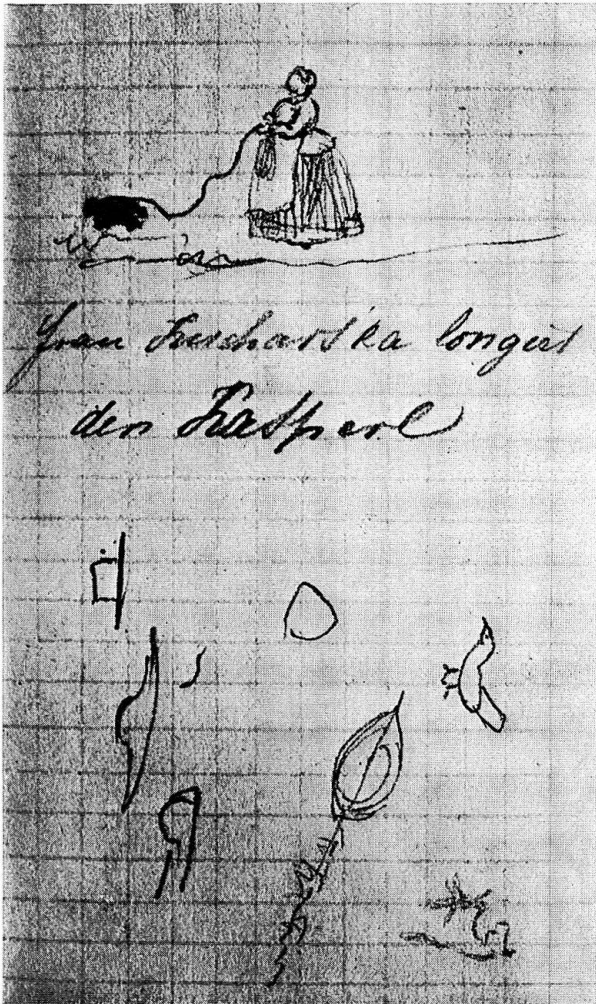 Frau Kucharska longirt
den Kasperl